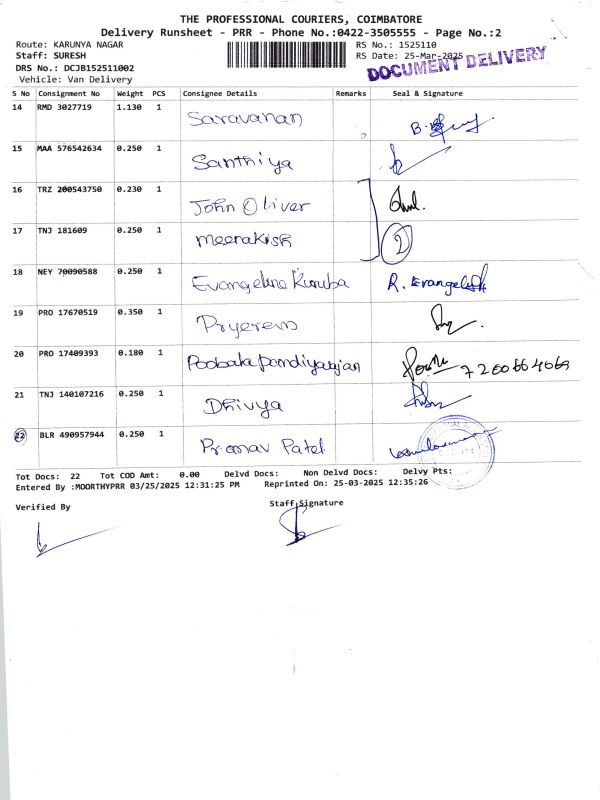 THE PROFESSIONAL COURIERS, COIMBATORE
Delivery Runsheet - PRR - Phone No.:0422-3505555 - Page No.:2
Route: KARUNYA NAGAR
RS No.: 1525110
Staff: SURESH
RS Date: 25-Mar-2025
DOCUMENT DELIVERY
DRS No.: DCJB152511002
Vehicle: Van Delivery
S No Consignment No Weight PCS Consignee Details Remarks Seal & Signature
14 RMD 3027719 1.130 1 Saravanan
15 MAA 576542634 0.250 1 Santhiya
16 TRZ 200543750 0.230 1 John Oliver
17 TNJ 181609 0.250 1 Meenakish 2
18 NEY 70090588 0.250 1 Evangeline Kiruba R. Evangeline
19 PRO 17670519 0.350 1
20 PRO 17409393 0.180 1 7200664069
21 TNJ 140107216 0.250 1 Dhivya
22 BLR 490957944 0.250 1 Pranav Patel
Tot Docs: 22 Tot COD Amt: 0.00 Delvd Docs: Non Delvd Docs: Delvy Pts:
Entered By :MOORTHYPRR 03/25/2025 12:31:25 PM Reprinted On: 25-03-2025 12:35:26
Verified By Staff Signature